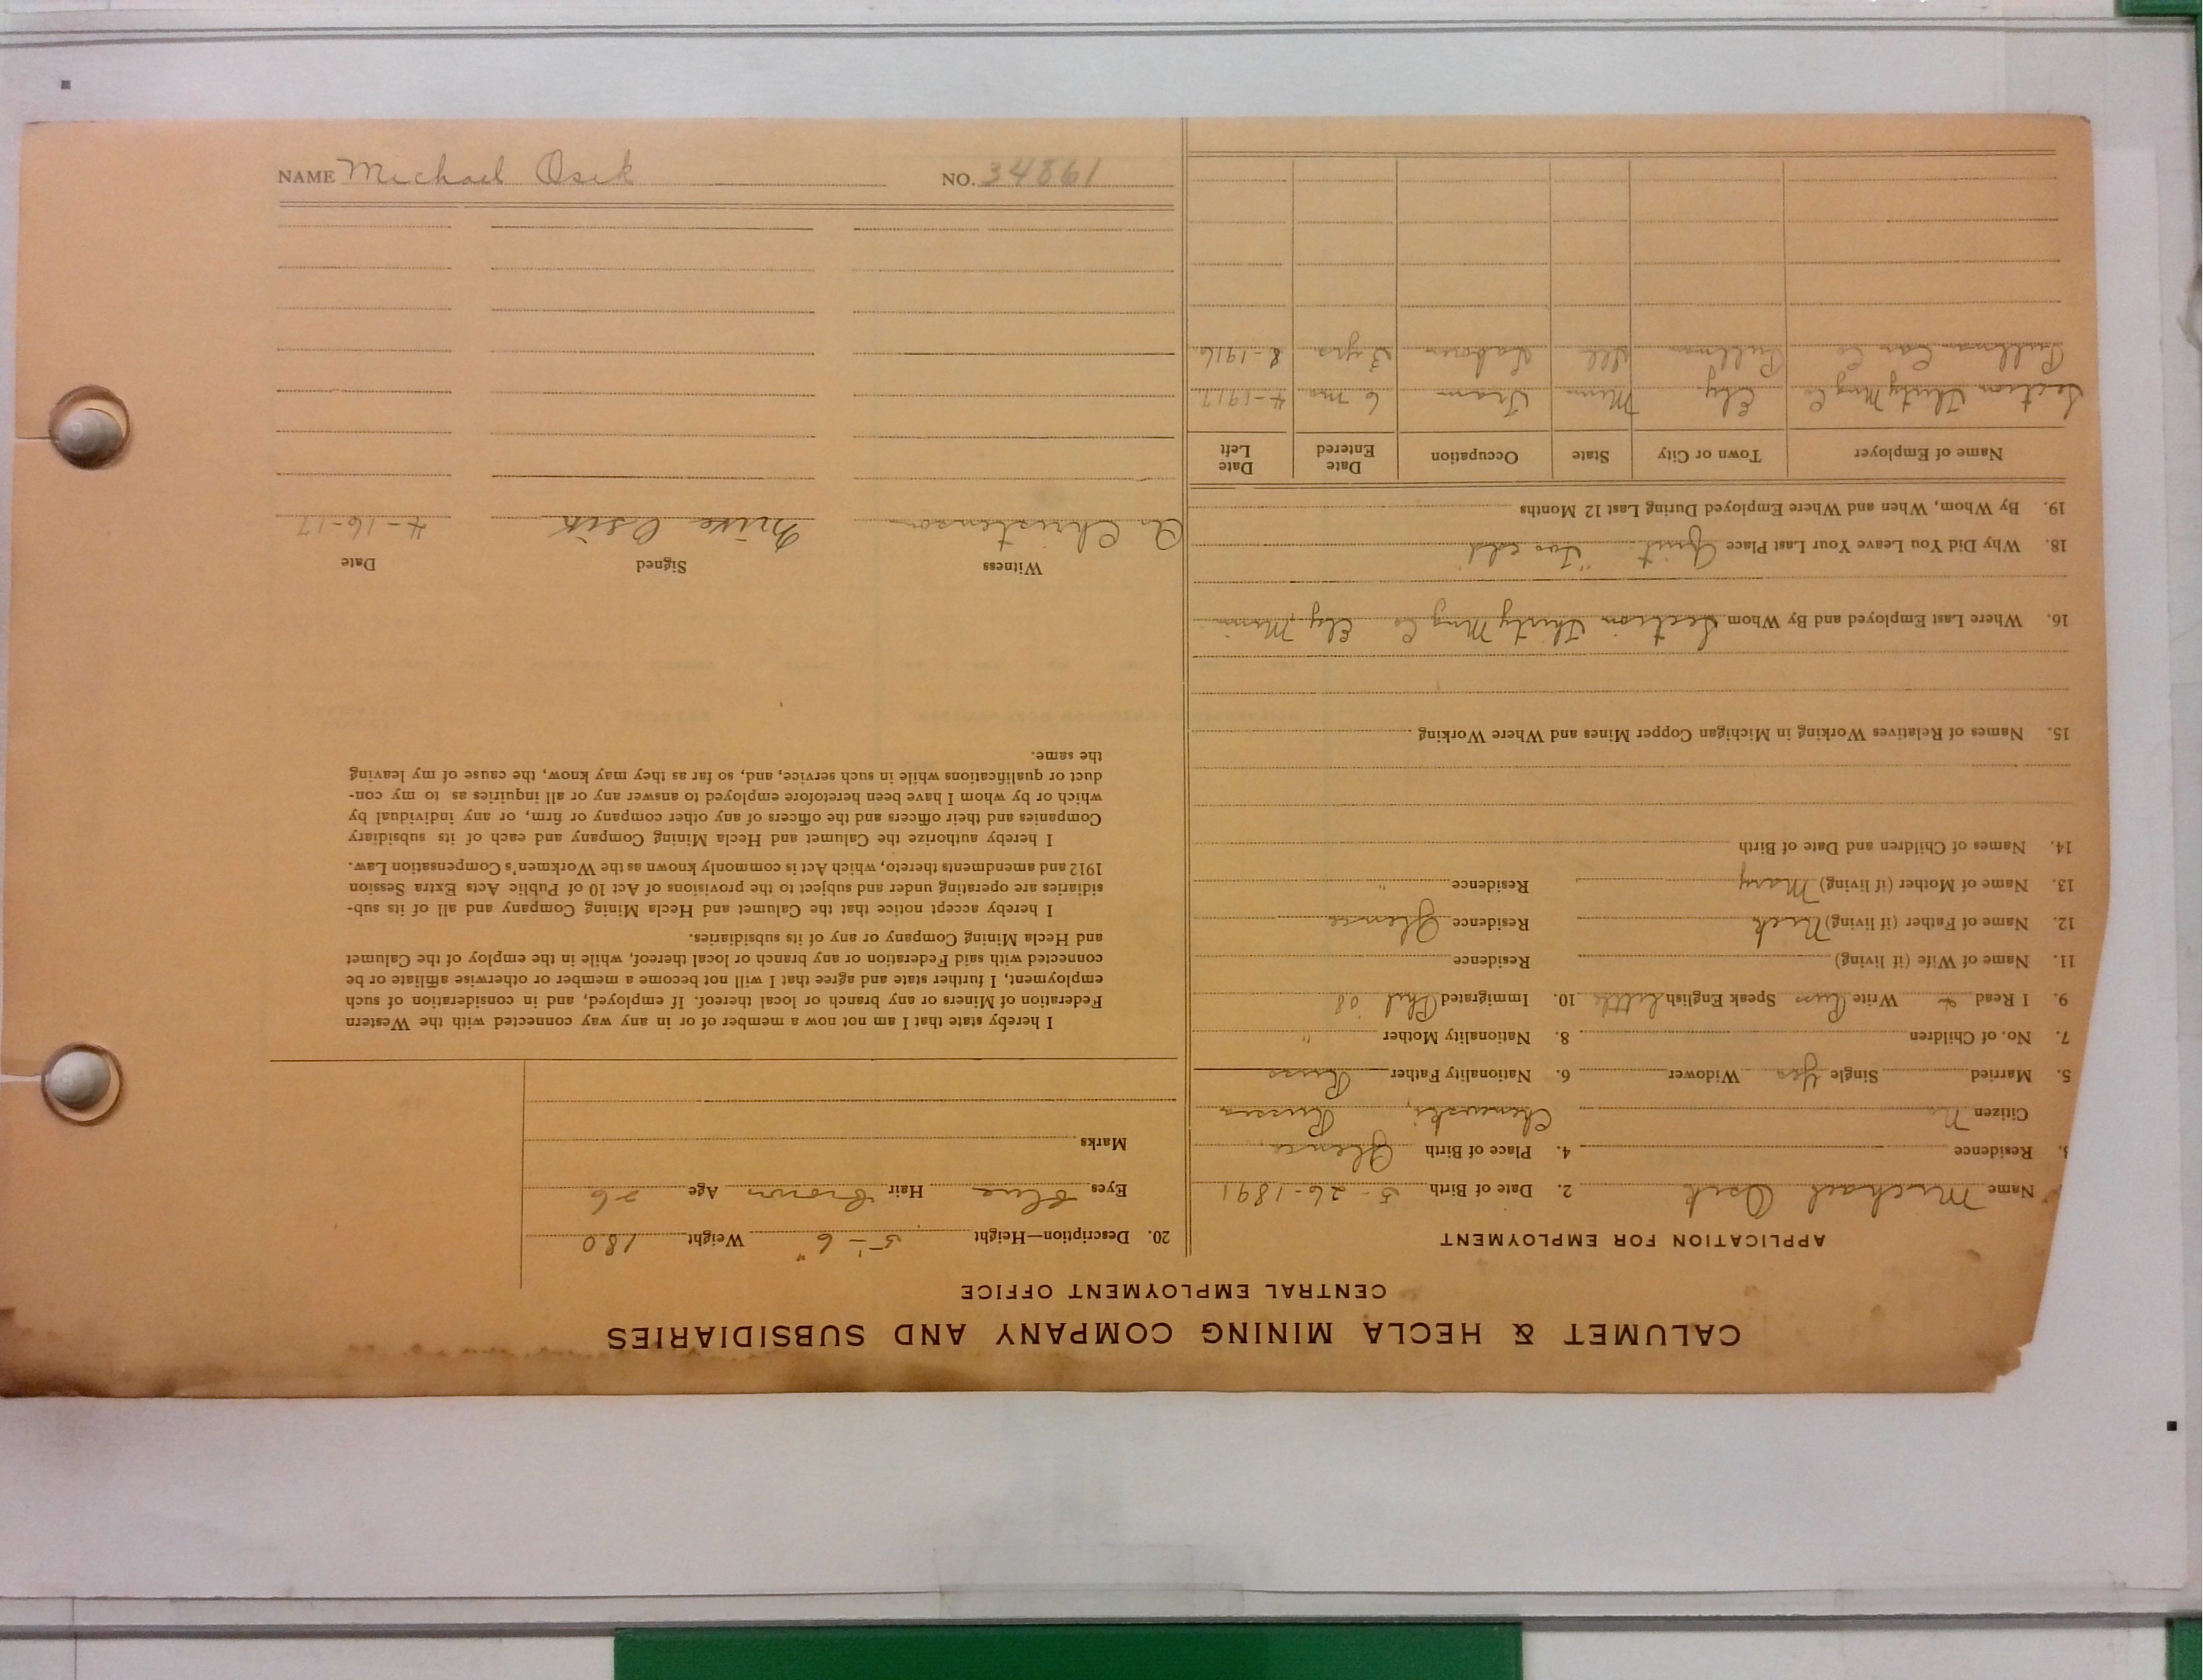 NAME Michael Osik NO. 34861
CALUMET & HECLA MINING COMPANY AND SUBSIDIARIES
CENTRAL EMPLOYMENT OFFICE
APPLICATION FOR EMPLOYMENT
Name Michael Osik 2. Date of Birth 5-26-1891
3. Residence 4. Place of Birth
Citizen No Russia
5. Married Single Yes Widower 6. Nationality Father Russ
7. No. of Children 8. Nationality Mother "
9. I Read & Write Russ Speak English little 10. Immigrated Phil '08
11. Name of Wife (if living) Residence
12. Name of Father (if living) Nick Residence
13. Name of Mother (if living) Mary Residence "
14. Names of Children and Date of Birth
15. Names of Relatives Working in Michigan Copper Mines and Where Working
16. Where Last Employed and By Whom Section Thirty Mng Co Ely Minn
18. Why Did You Leave Your Last Place Quit. Too cold
19. By Whom, When and Where Employed During Last 12 Months
Name of Employer Town or City State Occupation Date Entered Date Left
Section Thirty Mng Co Ely Minn Tram 6 mo 4-1917
Pullman Car Co Pullman Ill Laborer 3 yrs 8-1916
20. Description—Height 5'-6" Weight 180
Eyes Blue Hair Brown Age 26
Marks
I hereby state that I am not now a member of or in any way connected with the Western
Federation of Miners or any branch or local thereof. If employed, and in consideration of such
employment, I further state and agree that I will not become a member or otherwise affiliate or be
connected with said Federation or any branch or local thereof, while in the employ of the Calumet
and Hecla Mining Company or any of its subsidiaries.
I hereby accept notice that the Calumet and Hecla Mining Company and all of its sub-
sidiaries are operating under and subject to the provisions of Act 10 of Public Acts Extra Session
1912 and amendments thereto, which Act is commonly known as the Workmen's Compensation Law.
I hereby authorize the Calumet and Hecla Mining Company and each of its subsidiary
Companies and their officers and the officers of any other company or firm, or any individual by
which or by whom I have been heretofore employed to answer any or all inquiries as to my con-
duct or qualifications while in such service, and, so far as they may know, the cause of my leaving
the same.
Witness Signed Date
Christenson Mike Osik 4-16-17